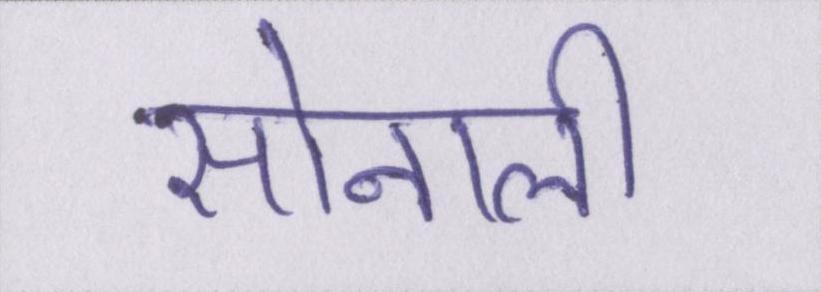 सोनाली